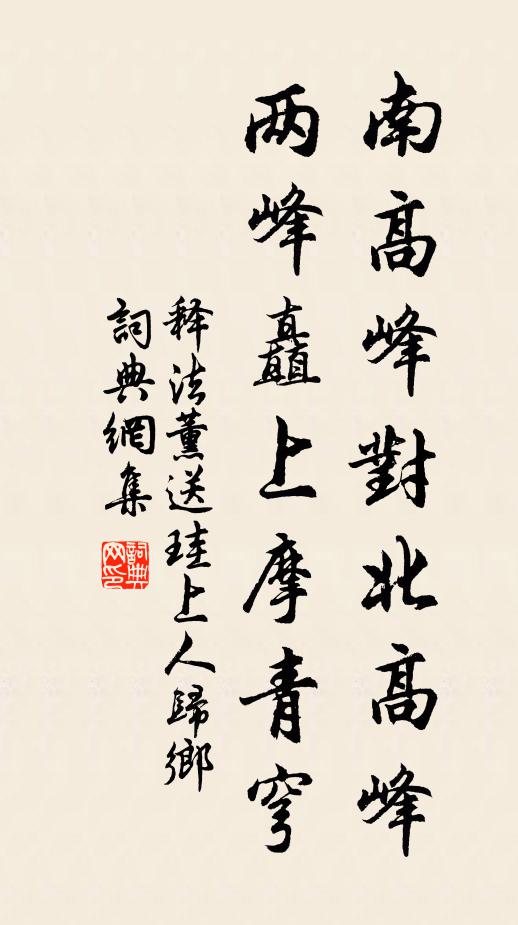 南高峰對北高峰
两峰矗上摩青穹
释法薰送珪上人歸鄉
詞典網集
詞典网印